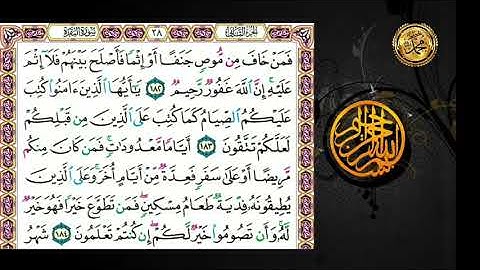 سورة البقرة ٢٨ الجزء الثاني
فَمَنْ خَافَ مِن مُّوصٍ جَنَفًا أَوْ إِثْمًا فَأَصْلَحَ بَيْنَهُمْ فَلَا إِثْمَ
عَلَيْهِ إِنَّ اللَّهَ غَفُورٌ رَّحِيمٌ ١٨٢ يَا أَيُّهَا الَّذِينَ ءَامَنُوا كُتِبَ
عَلَيْكُمُ الصِّيَامُ كَمَا كُتِبَ عَلَى الَّذِينَ مِن قَبْلِكُمْ
لَعَلَّكُمْ تَتَّقُونَ ١٨٣ أَيَّامًا مَّعْدُودَاتٍ فَمَن كَانَ مِنكُم
مَّرِيضًا أَوْ عَلَى سَفَرٍ فَعِدَّةٌ مِّنْ أَيَّامٍ أُخَرَ وَعَلَى الَّذِينَ
يُطِيقُونَهُ فِدْيَةٌ طَعَامُ مِسْكِينٍ فَمَن تَطَوَّعَ خَيْرًا فَهُوَ خَيْرٌ
لَّهُ وَأَن تَصُومُوا خَيْرٌ لَّكُمْ إِن كُنتُمْ تَعْلَمُونَ ١٨٤ شَهْرُ
محمد
بسم الله الرحمن الرحيم